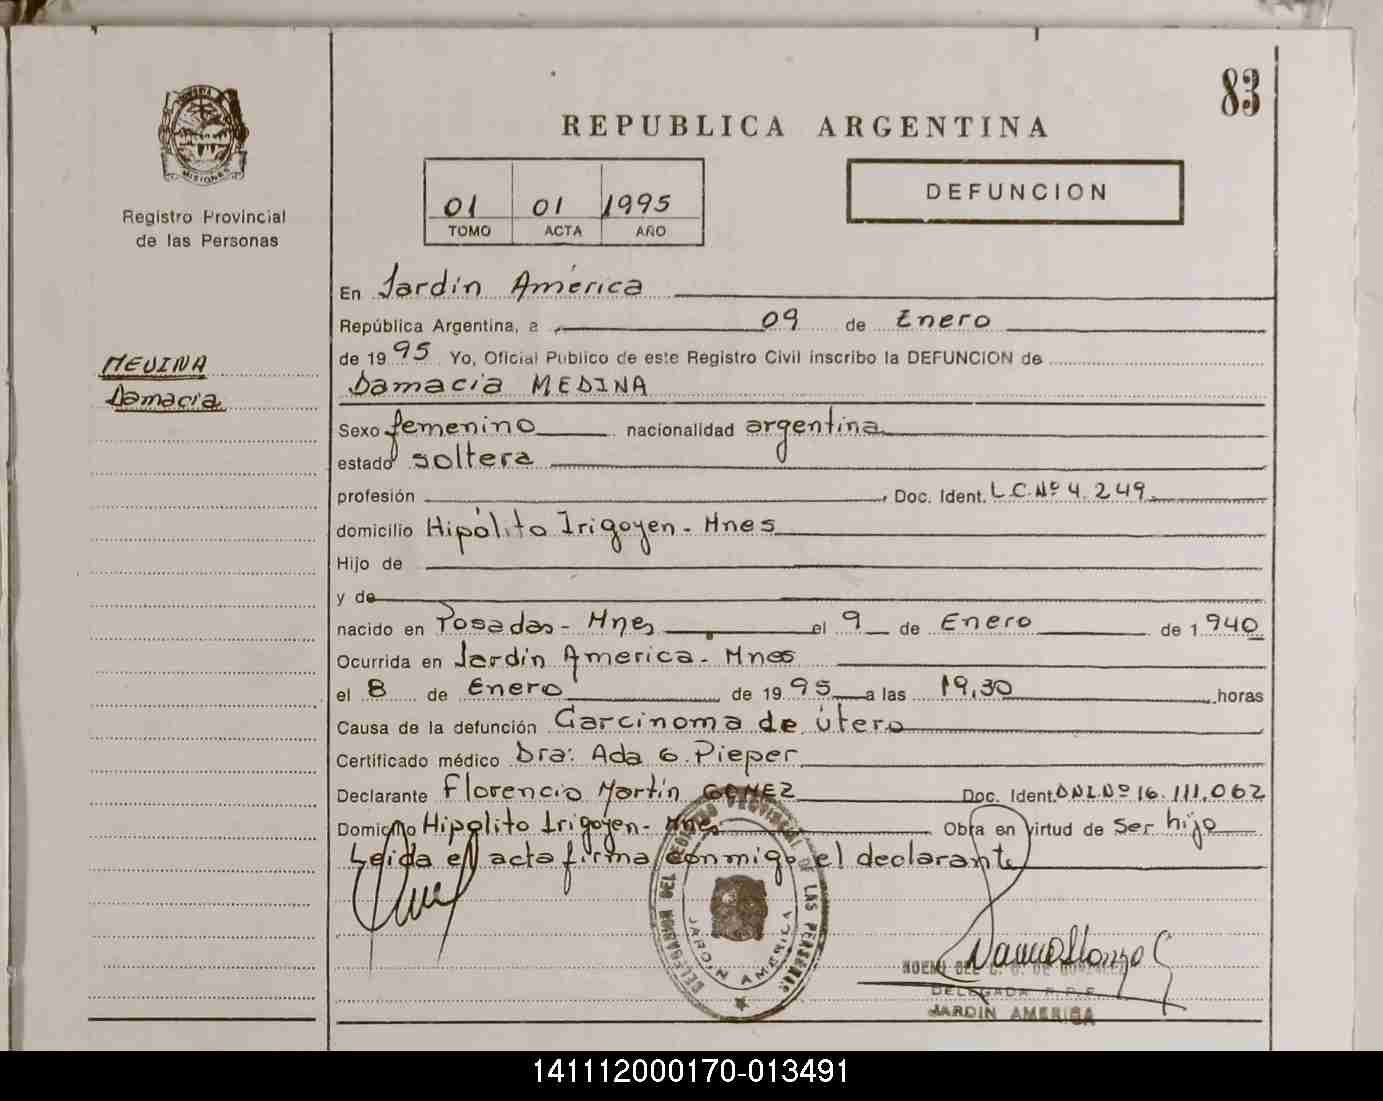 83
MISIONES
REPUBLICA ARGENTINA
Registro Provincial
de las Personas
01 01 1995
TOMO ACTA AÑO
DEFUNCION
MEDINA
Damacia
En Jardín América
República Argentina, a 09 de Enero
de 1995 Yo, Oficial Publico de este Registro Civil inscribo la DEFUNCION de
Damacia MEDINA
Sexo femenino nacionalidad argentina
estado soltera
profesión Doc. Ident. L.C.Nº 4.249.
domicilio Hipólito Irigoyen - Mnes
Hijo de
y de
nacido en Posadas - Mnes el 9 de Enero de 1940
Ocurrida en Jardín America - Mnes
el 8 de Enero de 1995 a las 19,30 horas
Causa de la defunción Carcinoma de útero
Certificado médico Dra: Ada G. Pieper
Declarante Florencio Martín GOMEZ Doc. Ident. DNI.Nº 16.111.062
Domicilio Hipólito Irigoyen - Mnes Obra en virtud de Ser hijo
Leida el acta firma conmigo el declarante
DELEGACION DEL REGISTRO PROVINCIAL DE LAS PERSONAS
JARDIN AMERICA
NOEMI DEL C. G. DE GONZALEZ
DELEGADA R.P.P.
JARDIN AMERICA
141112000170-013491